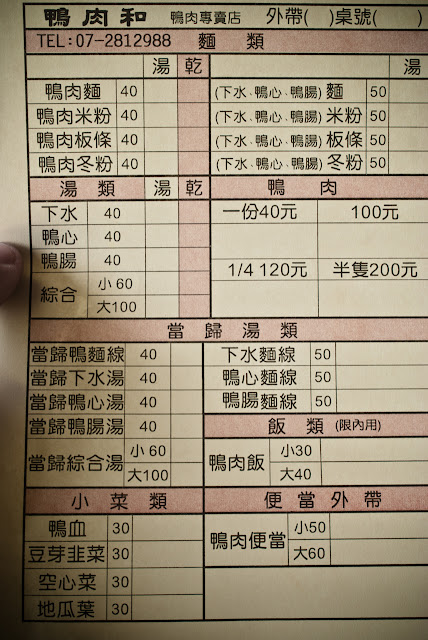 鴨肉和 鴨肉專賣店 外帶( )桌號( )
TEL:07-2812988 麵類
湯 乾 湯
鴨肉麵 40 (下水、鴨心、鴨腸)麵 50
鴨肉米粉 40 (下水、鴨心、鴨腸)米粉 50
鴨肉板條 40 (下水、鴨心、鴨腸)板條 50
鴨肉冬粉 40 (下水、鴨心、鴨腸)冬粉 50
湯類 湯 乾 鴨肉
下水 40 一份40元 100元
鴨心 40
鴨腸 40 1/4 120元 半隻200元
綜合 小60
大100
當歸湯類
當歸鴨麵線 40 下水麵線 50
當歸下水湯 40 鴨心麵線 50
當歸鴨心湯 40 鴨腸麵線 50
當歸鴨腸湯 40 飯類(限內用)
當歸綜合湯 小60 鴨肉飯 小30
大100 大40
小菜類 便當外帶
鴨血 30 鴨肉便當 小50
豆芽韭菜 30 大60
空心菜 30
地瓜葉 30